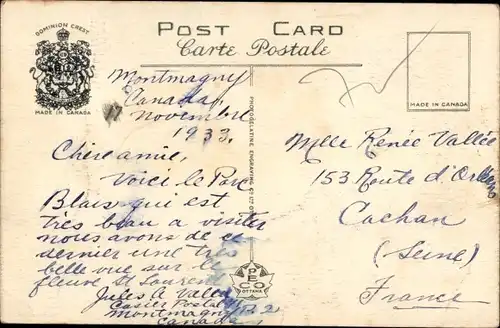 DOMINION CREST
MADE IN CANADA
POST CARD
Carte Postale
MADE IN CANADA
Montmagny
Canada,
17 novembre
1933.
Chère amie,
Voici le Parc
Blais qui est
très beau a visiter
nous avons de ce
dernier une très
belle vue sur le
fleuve St Laurent
Jules A Vallée
Casier Postal
Montmagny
Canada
PHOTOGELATINE ENGRAVING CO. LTD.
PECO
OTTAWA
Mlle Renée Vallée
153 Route d'Orléans
Cachan
(Seine)
France